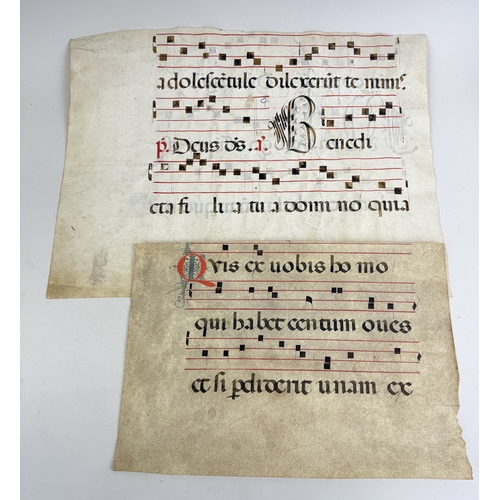 adolescẽtule dilexerũt te nimis.
p. Deus d̃s. a. Benedi
cta fi li a tu a domi no quia
Quis ex uobis ho mo
qui habet centum oues
et si pdiderit unam ex